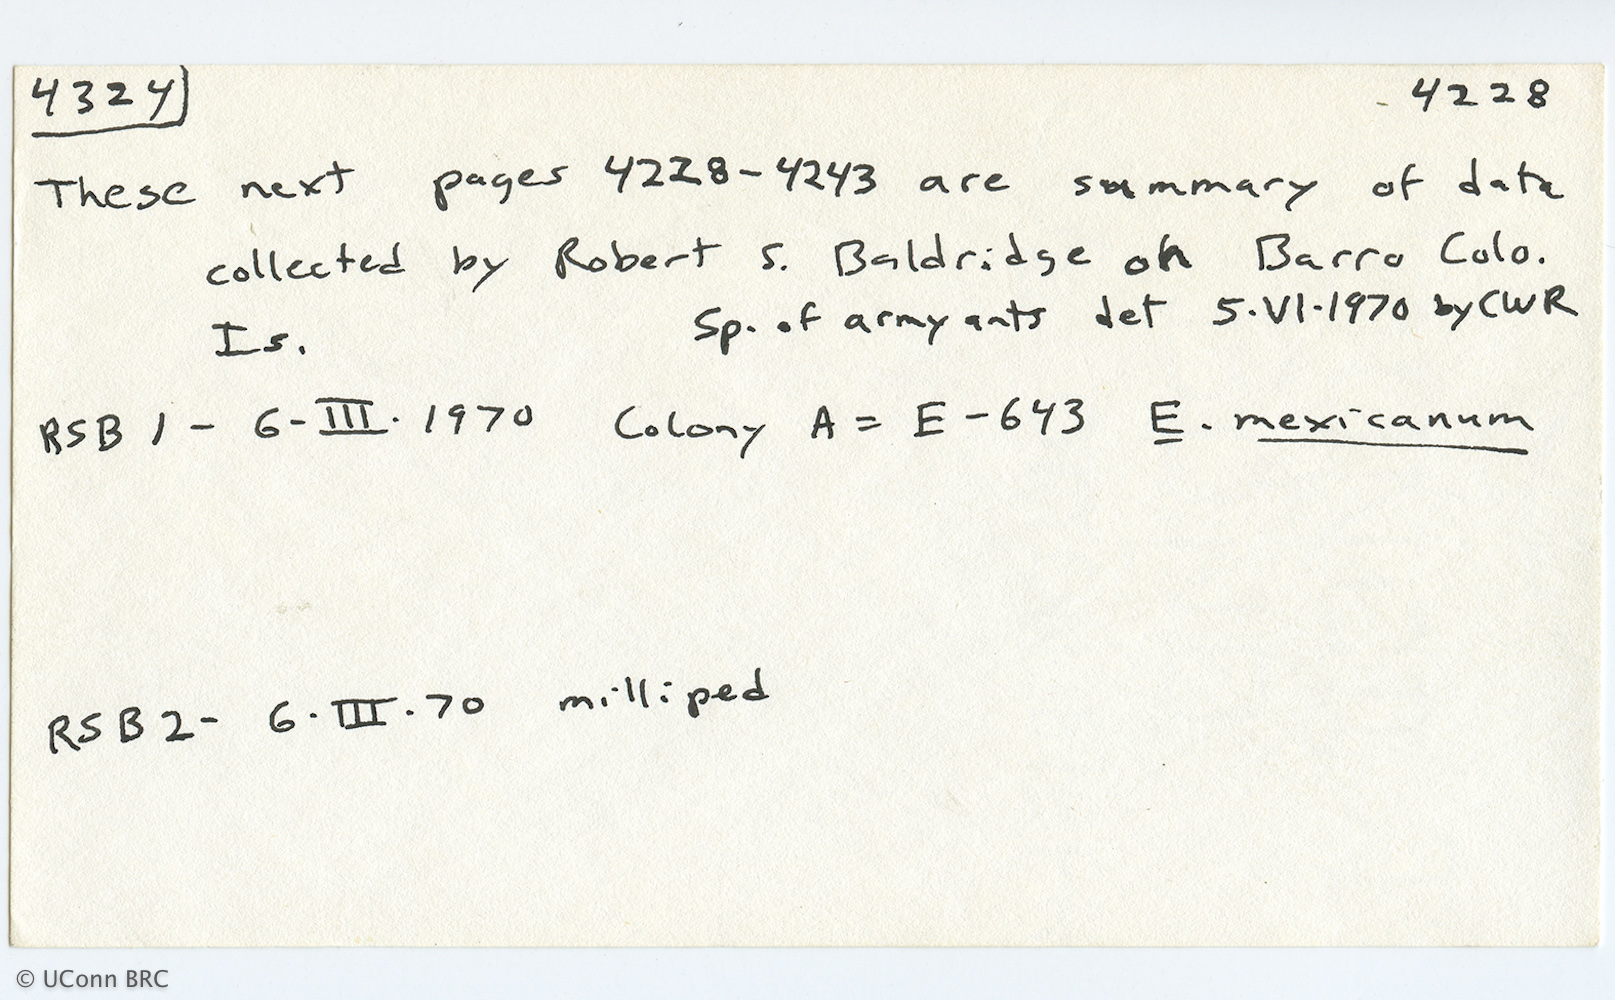 4324 4228
These next pages 4228-4243 are summary of data
collected by Robert S. Baldridge on Barro Colo.
Is. Sp. of army ants det 5.VI.1970 by CWR
RSB 1 - 6-III.1970 Colony A = E-643 E. mexicanum
RSB 2- 6.III.70 milliped
© UConn BRC